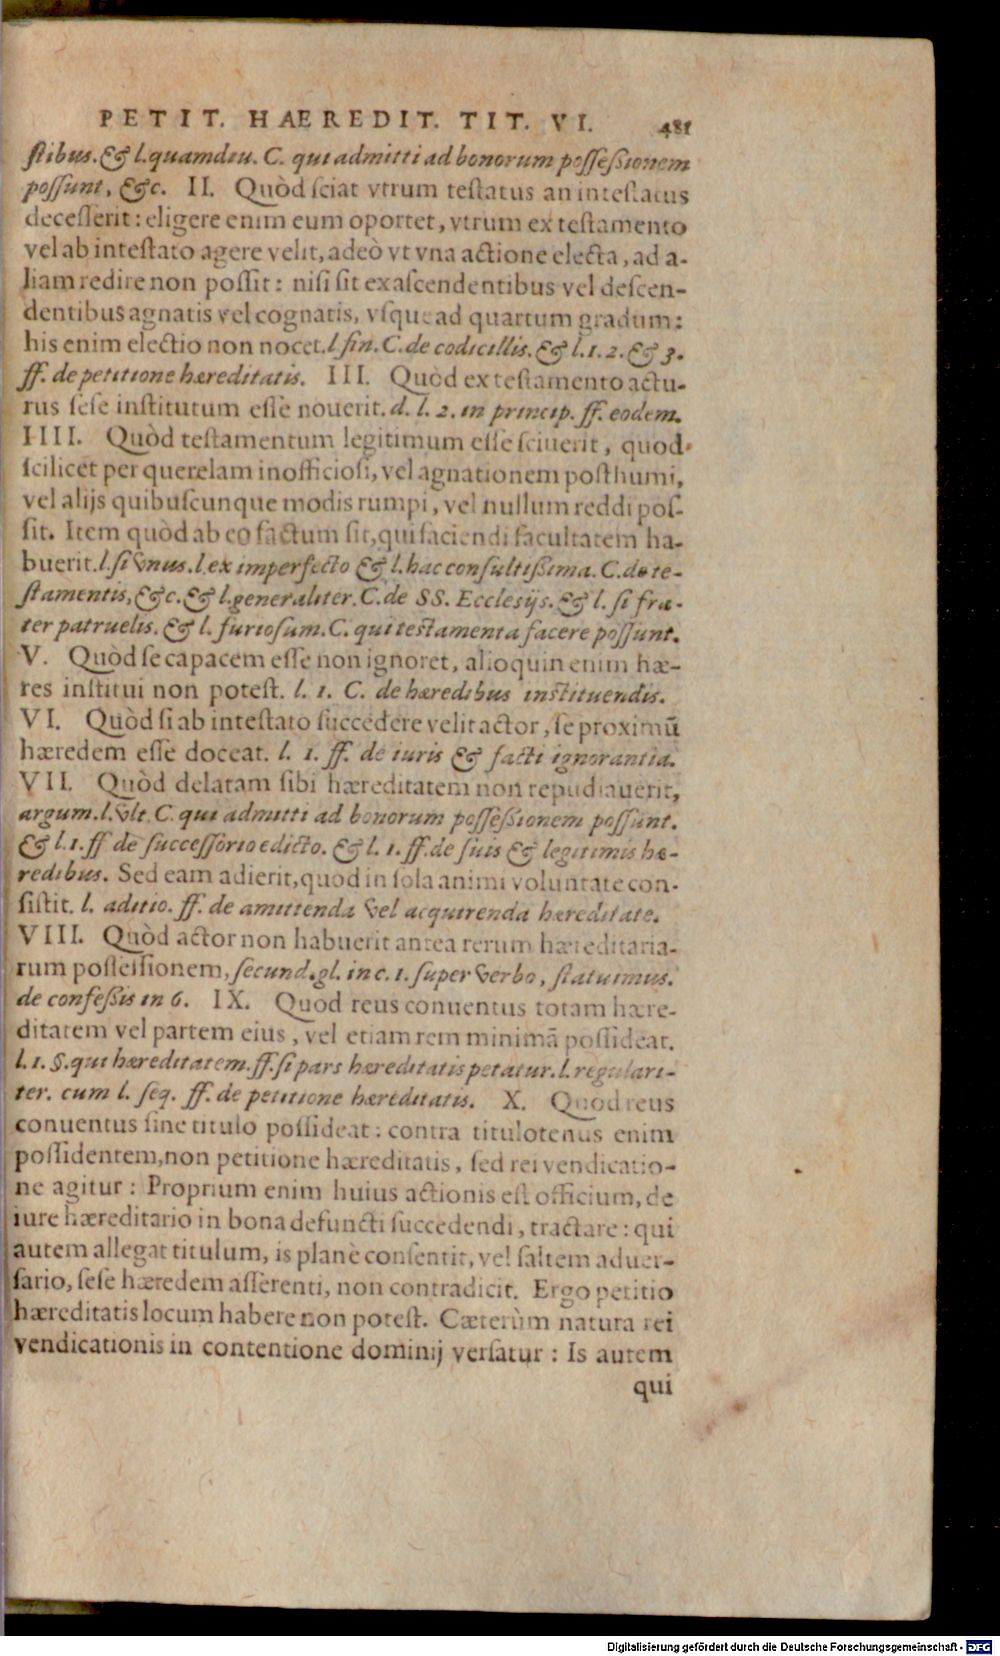 PETIT. HAEREDIT. TIT. VI. 481
ſtibus. & l. quamdiu. C. qui admitti ad bonorum poſſeſsionem
poſſunt, &c. II. Quòd ſciat vtrum teſtatus an inteſtatus
deceſſerit: eligere enim eum oportet, vtrum ex teſtamento
vel ab inteſtato agere velit, adeò vt vna actione electa, ad a-
liam redire non poſſit: niſi ſit ex aſcendentibus vel deſcen-
dentibus agnatis vel cognatis, vſque ad quartum gradum:
his enim electio non nocet. l. fin. C. de codicillis. & l. 1. 2. & 3.
ff. de petitione hæreditatis. III. Quòd ex teſtamento actu-
rus ſeſe inſtitutum eſſe nouerit. d. l. 2. in princip. ff. eodem.
IIII. Quòd teſtamentum legitimum eſſe ſciuerit, quod
ſcilicet per querelam inofficioſi, vel agnationem poſthumi,
vel alijs quibuſcunque modis rumpi, vel nullum reddi poſ-
ſit. Item quòd ab eo factum ſit, qui faciendi facultatem ha-
buerit. l. ſi vnus. l. ex imperfecto & l. hac conſultiſsima. C. de te-
ſtamentis, &c. & l. generaliter. C. de SS. Eccleſijs. & l. ſi fra-
ter patruelis. & l. furioſum. C. qui teſtamenta facere poſſunt.
V. Quòd ſe capacem eſſe non ignoret, alioquin enim hæ-
res inſtitui non poteſt. l. 1. C. de hæredibus inſtituendis.
VI. Quòd ſi ab inteſtato ſuccedere velit actor, ſe proximū
hæredem eſſe doceat. l. 1. ff. de iuris & facti ignorantia.
VII. Quòd delatam ſibi hæreditatem non repudiauerit,
argum. l. vlt. C. qui admitti ad bonorum poſſeſsionem poſſunt.
& l. 1. ff de ſucceſſorio edicto. & l. 1. ff. de ſuis & legitimis hæ-
redibus. Sed eam adierit, quod in ſola animi voluntate con-
ſiſtit. l. aditio. ff. de amittenda vel acquirenda hæreditate.
VIII. Quòd actor non habuerit antea rerum hæreditaria-
rum poſſeſſionem, ſecund. gl. in c. 1. ſuper verbo, ſtatuimus.
de confeſsis in 6. IX. Quod reus conuentus totam hære-
ditatem vel partem eius, vel etiam rem minimā poſſideat.
l. 1. §. qui hæreditatem. ff. ſi pars hæreditatis petatur. l. regulari-
ter. cum l. ſeq. ff. de petitione hæreditatis. X. Quod reus
conuentus ſine titulo poſſideat: contra titulotenus enim
poſſidentem, non petitione hæreditatis, ſed rei vendicatio-
ne agitur: Proprium enim huius actionis eſt officium, de
iure hæreditario in bona defuncti ſuccedendi, tractare: qui
autem allegat titulum, is planè conſentit, vel ſaltem aduer-
ſario, ſeſe hæredem aſſerenti, non contradicit. Ergo petitio
hæreditatis locum habere non poteſt. Cæterùm natura rei
vendicationis in contentione dominij verſatur: Is autem
qui
Digitalisierung gefördert durch die Deutsche Forschungsgemeinschaft - DFG